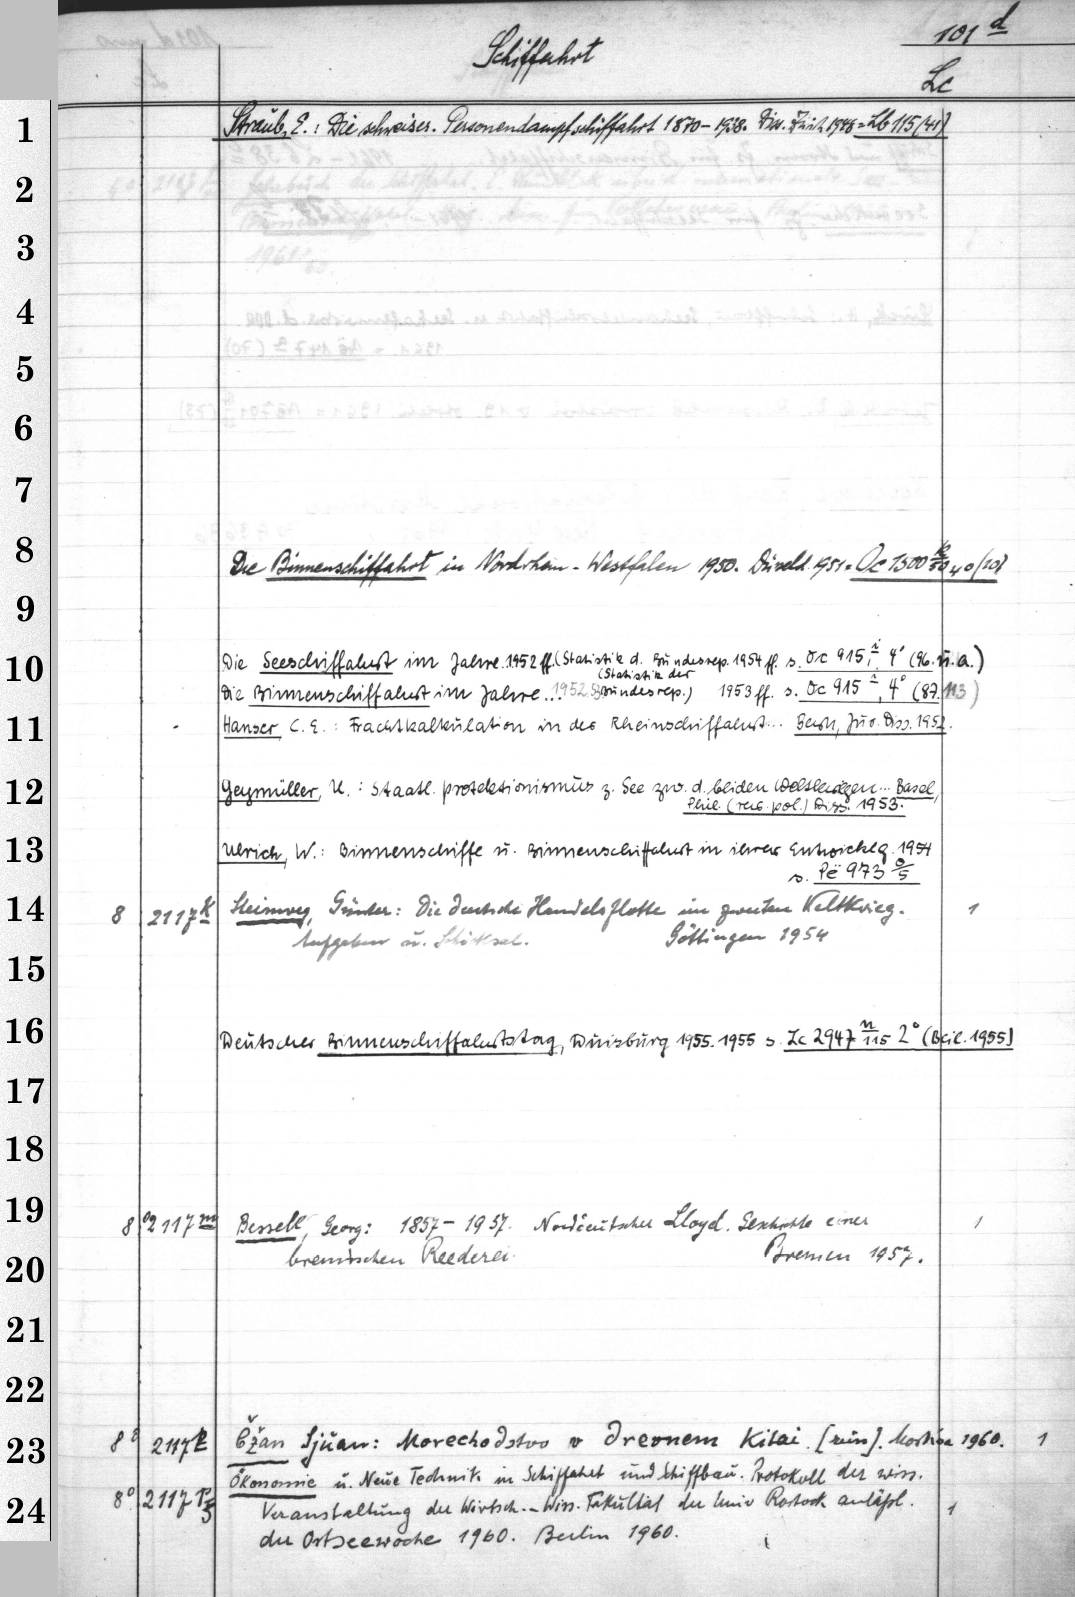 Schiffahrt 101 d
Lc
1 Straub, E.: Die schweizer. Personendampfschiffahrt 1870-1938. Diss. Zürich 1948 = Lb 115 (41)
2
3
4
5
6
7
8 Die Binnenschiffahrt in Nordrhein-Westfalen 1950. Düsseld. 1951 = Oc 1500 4° (20)
9
10 Die Seeschiffahrt im Jahre 1952 ff. (Statistik d. Bundesrep. 1954 ff. s. Oc 915 i, 4° (96. u. a.)
Die Binnenschiffahrt im Jahre... 1952 (Statistik der Bundesrep.) 1953 ff. s. Oc 915 i, 4° (87, 113)
11 Hanser, C. E.: Frachtkalkulation in der Rheinschiffahrt... Bern, Jur. Diss. 1952.
12 Geymüller, U.: Staatl. protektionismus z. See zw. d. beiden Weltkriegen... Basel,
Phil. Diss. 1953.
13 Ulrich, W.: Binnenschiffe u. Binnenschiffahrt in ihrer Entwicklg. 1954
s. Pë 973 o/5
14 8 2117 k Steinweg, Günther: Die deutsche Handelsflotte im zweiten Weltkrieg. 1
Aufgaben u. Schicksal. Göttingen 1954
15
16 Deutscher Binnenschiffahrtstag, Duisburg 1955. 1955 s. Lc 2947 n/115 2° (Beil. 1955)
17
18
19 8° 2117 m Bessell, Georg: 1857-1957. Norddeutscher Lloyd. Geschichte einer 1
20 bremischen Reederei. Bremen 1957.
21
22
23 8° 2117 p Čžan Sjuan: Morechodstvo v drevnem Kitai. [russ]. Moskva 1960. 1
Ökonomie u. Neue Technik in Schiffahrt und Schiffbau. Protokoll der wiss.
24 8° 2117 p/5 Veranstaltung der Wirtsch.-Wiss. Fakultät der Univ Rostock anläßl. 1
der Ostseewoche 1960. Berlin 1960.